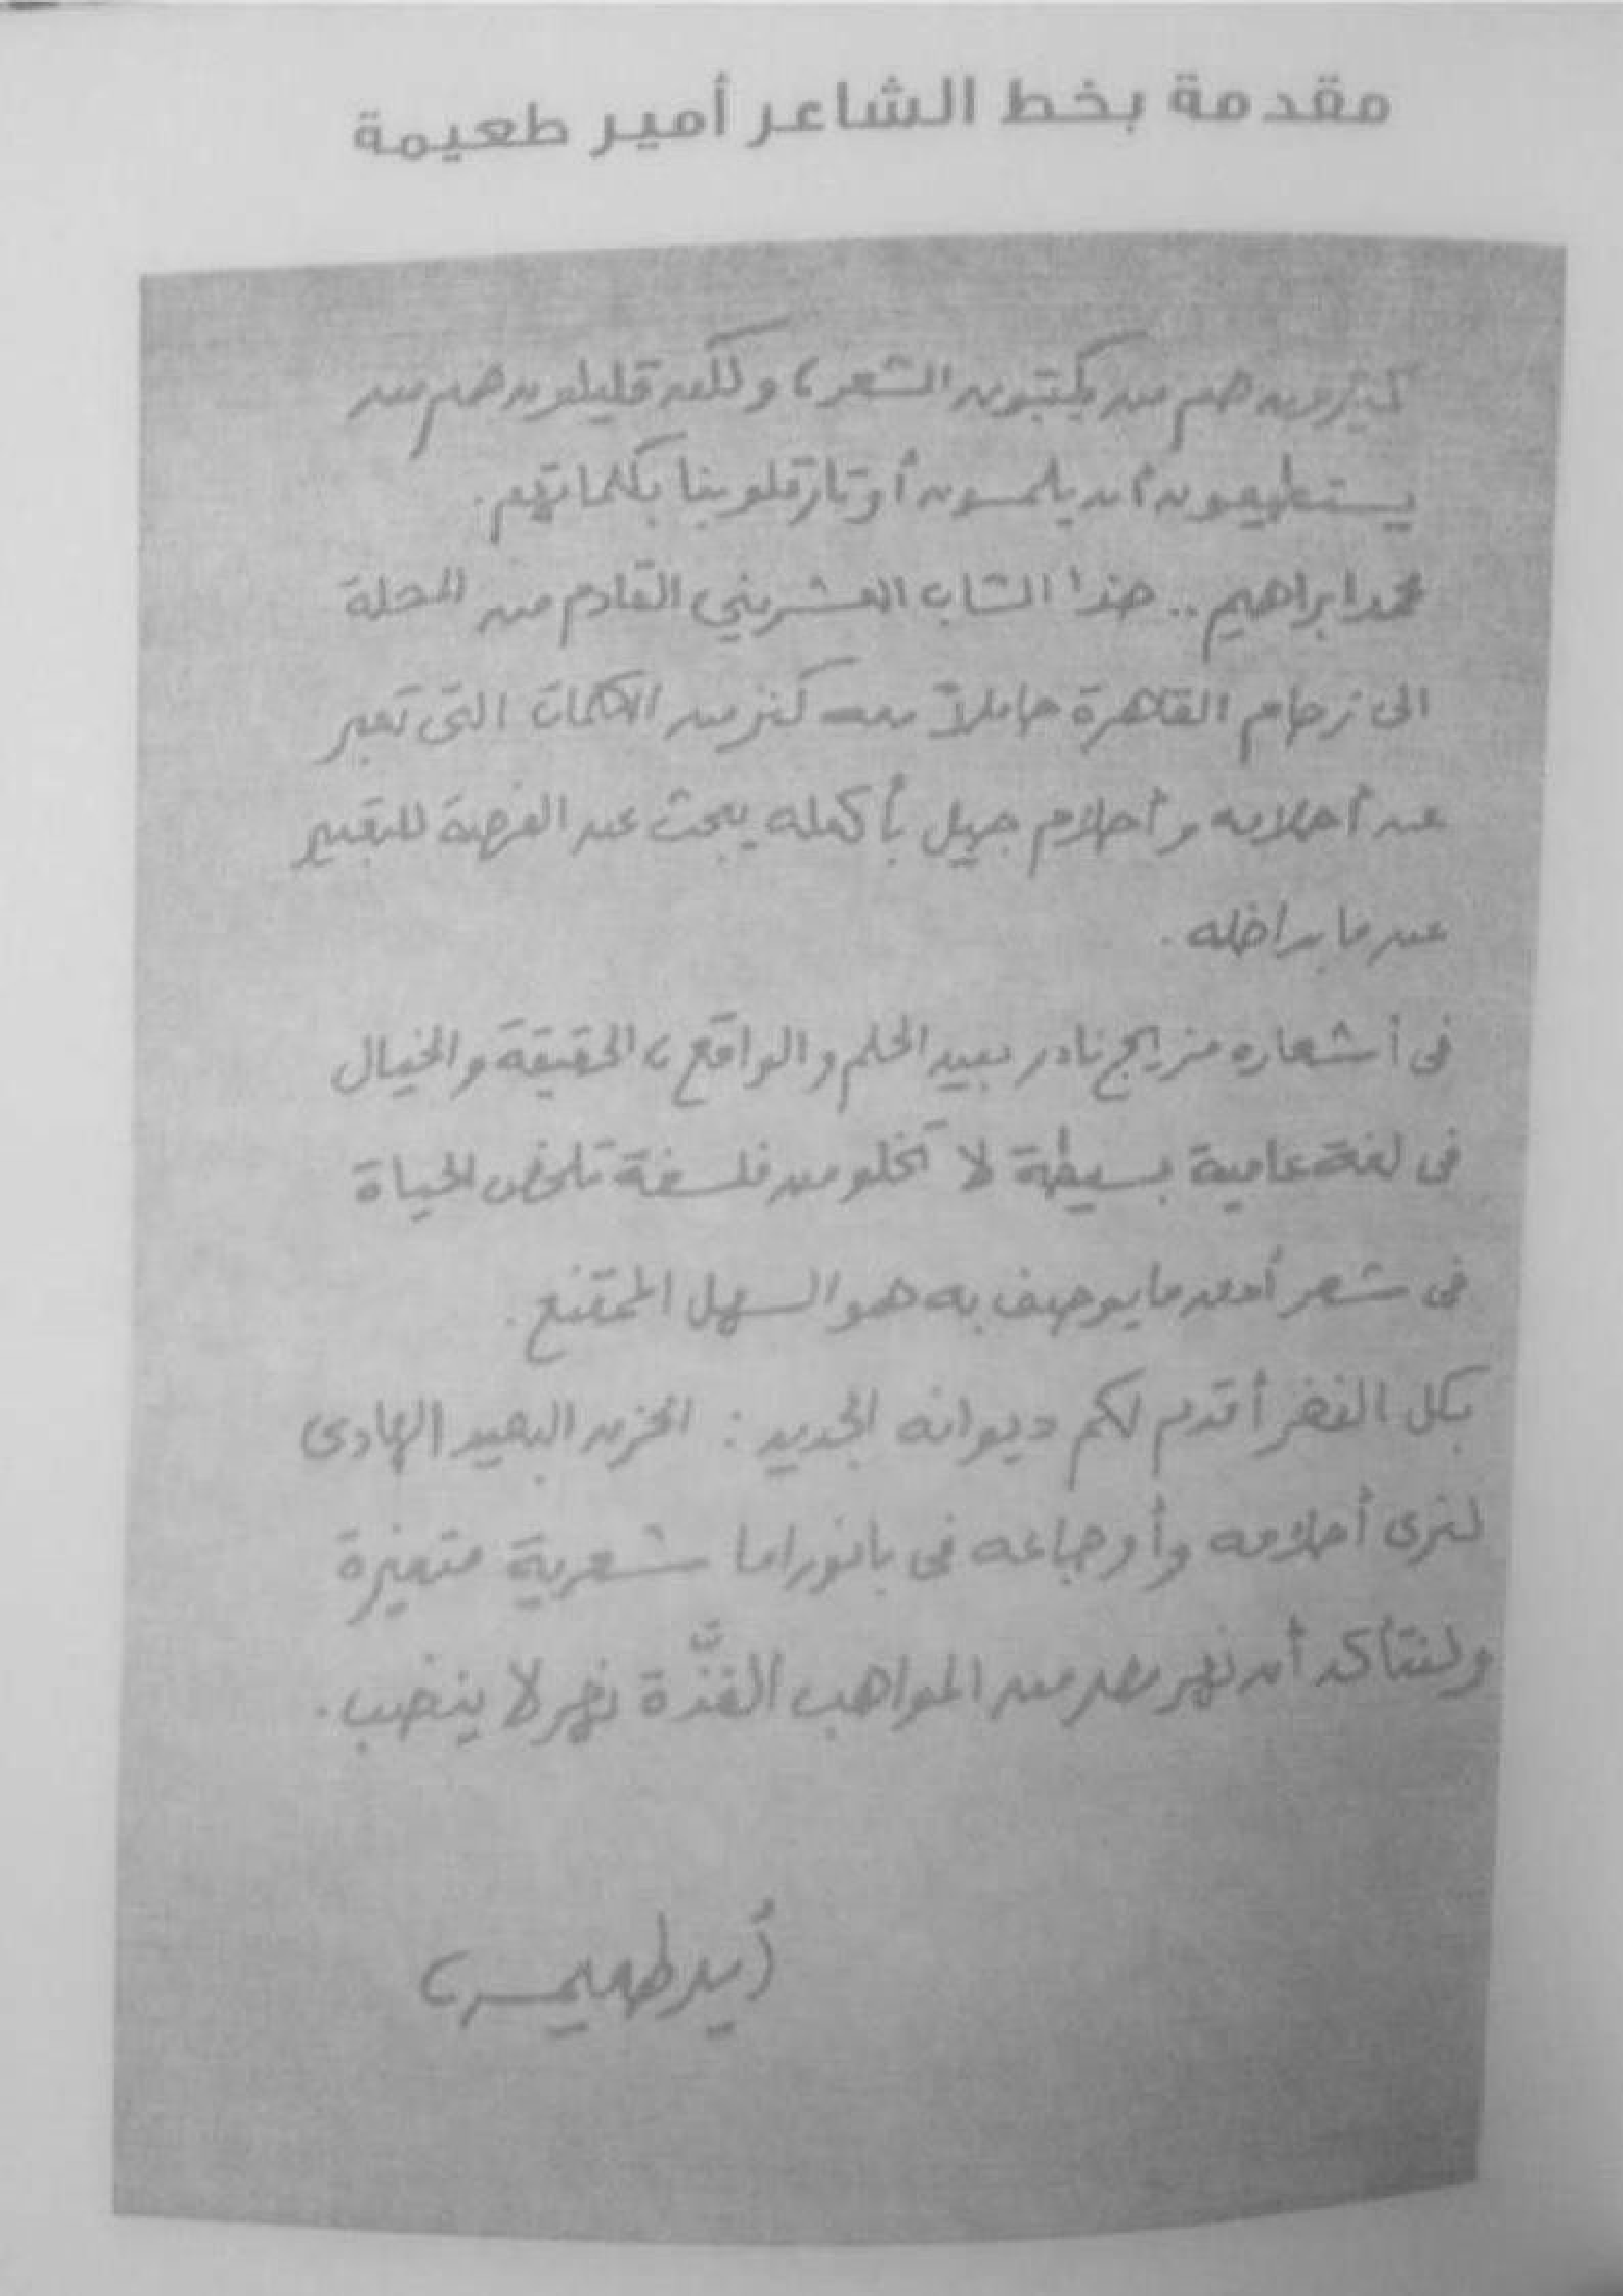 مقدمة بخط الشاعر أمير طعيمة
كثيرون هم من يكتبون الشعر، ولكن قليلون هم من
يستطيعون أن يلمسون أوتار قلوبنا بكلماتهم.
محمد ابراهيم .. هذا الشاب العشريني القادم من المحلة
الى زحام القاهرة حاملاً معه كنز من الكلمات التى تعبر
عن أحلامه وأحلام جيل بأكمله يبحث عن الفرصة للتعبير
عن ما بداخله .
فى أشعاره مزيج نادر بين الحلم والواقع، الحقيقة والخيال
فى لغة عامية بسيطة لا تخلو من فلسفة تلخص الحياة
فى شعر أدق ما يوصف به هو السهل الممتنع .
بكل الفخر أقدم لكم ديوانه الجديد : الحزن البعيد الهادى
لنرى أحلامه وأوجاعه فى بانوراما شعرية متميزة
ولنتأكد أن نهر مصر من المواهب الفذَّة نهر لا ينضب .
أمير طعيمة